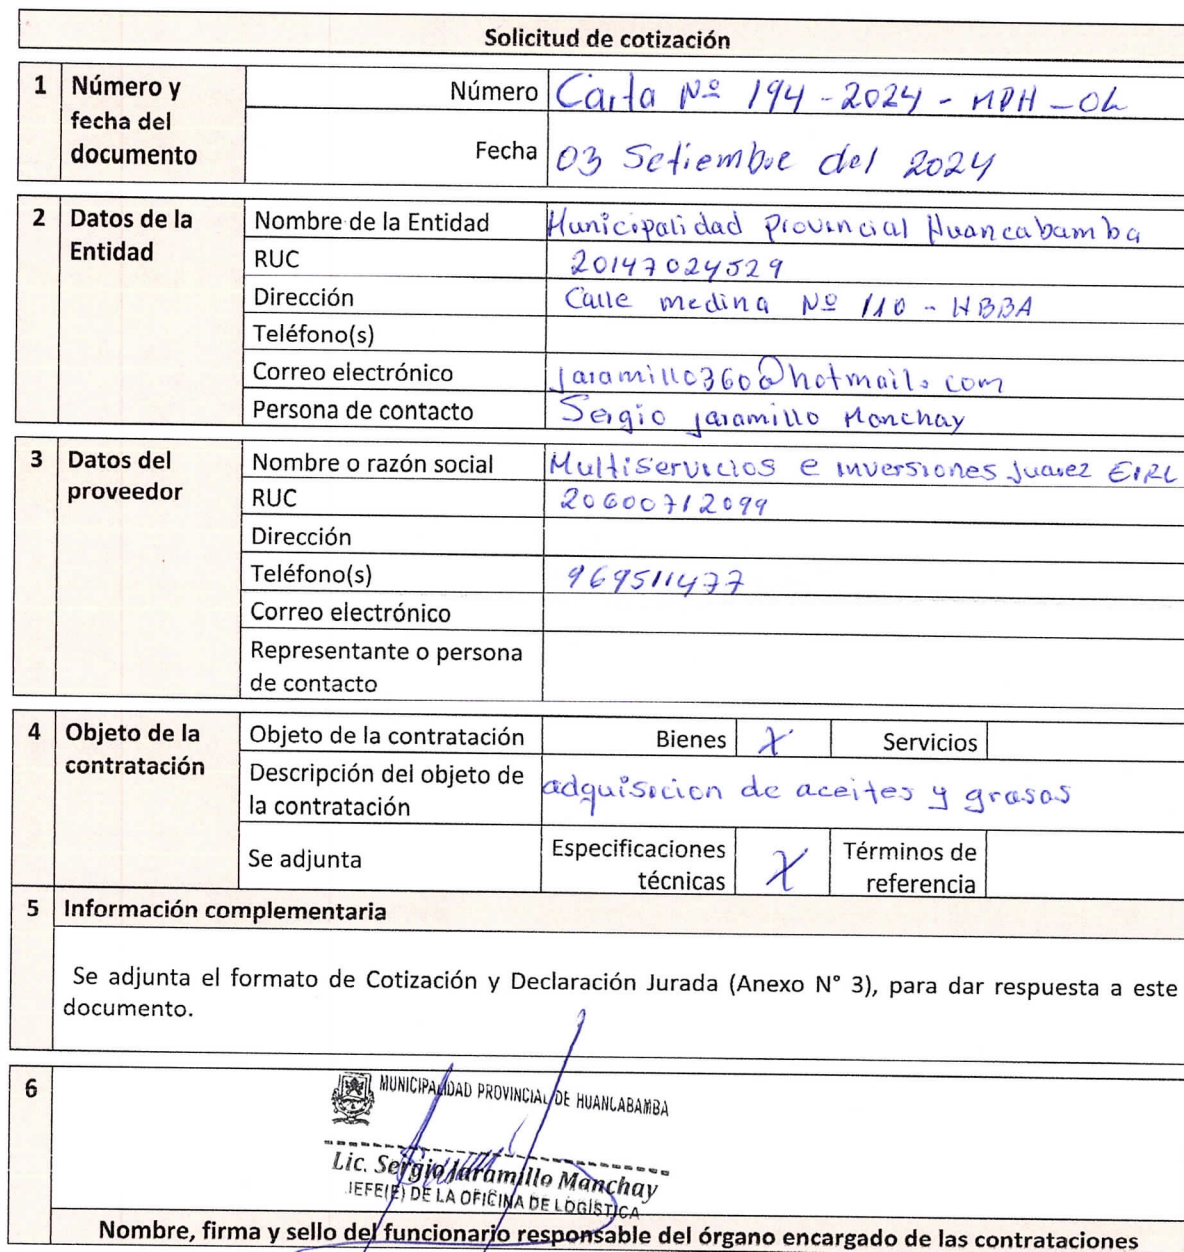 Solicitud de cotización
1 Número y fecha del documento
Número Carta Nº 194-2024-MPH-OL
Fecha 03 Setiembre del 2024
2 Datos de la Entidad
Nombre de la Entidad Municipalidad Provincial Huancabamba
RUC 20147024529
Dirección Calle medina Nº 110 - HBBA
Teléfono(s)
Correo electrónico jaramillo360@hotmail.com
Persona de contacto Sergio jaramillo Manchay
3 Datos del proveedor
Nombre o razón social Multiservicios e inversiones Juarez EIRL
RUC 20600712099
Dirección
Teléfono(s) 969511477
Correo electrónico
Representante o persona de contacto
4 Objeto de la contratación
Objeto de la contratación Bienes X Servicios
Descripción del objeto de la contratación adquisicion de aceites y grasas
Se adjunta Especificaciones técnicas X Términos de referencia
5 Información complementaria
Se adjunta el formato de Cotización y Declaración Jurada (Anexo N° 3), para dar respuesta a este
documento.
6
MUNICIPALIDAD PROVINCIAL DE HUANCABAMBA
Lic. Sergio Jaramillo Manchay
JEFE(E) DE LA OFICINA DE LOGÍSTICA
Nombre, firma y sello del funcionario responsable del órgano encargado de las contrataciones